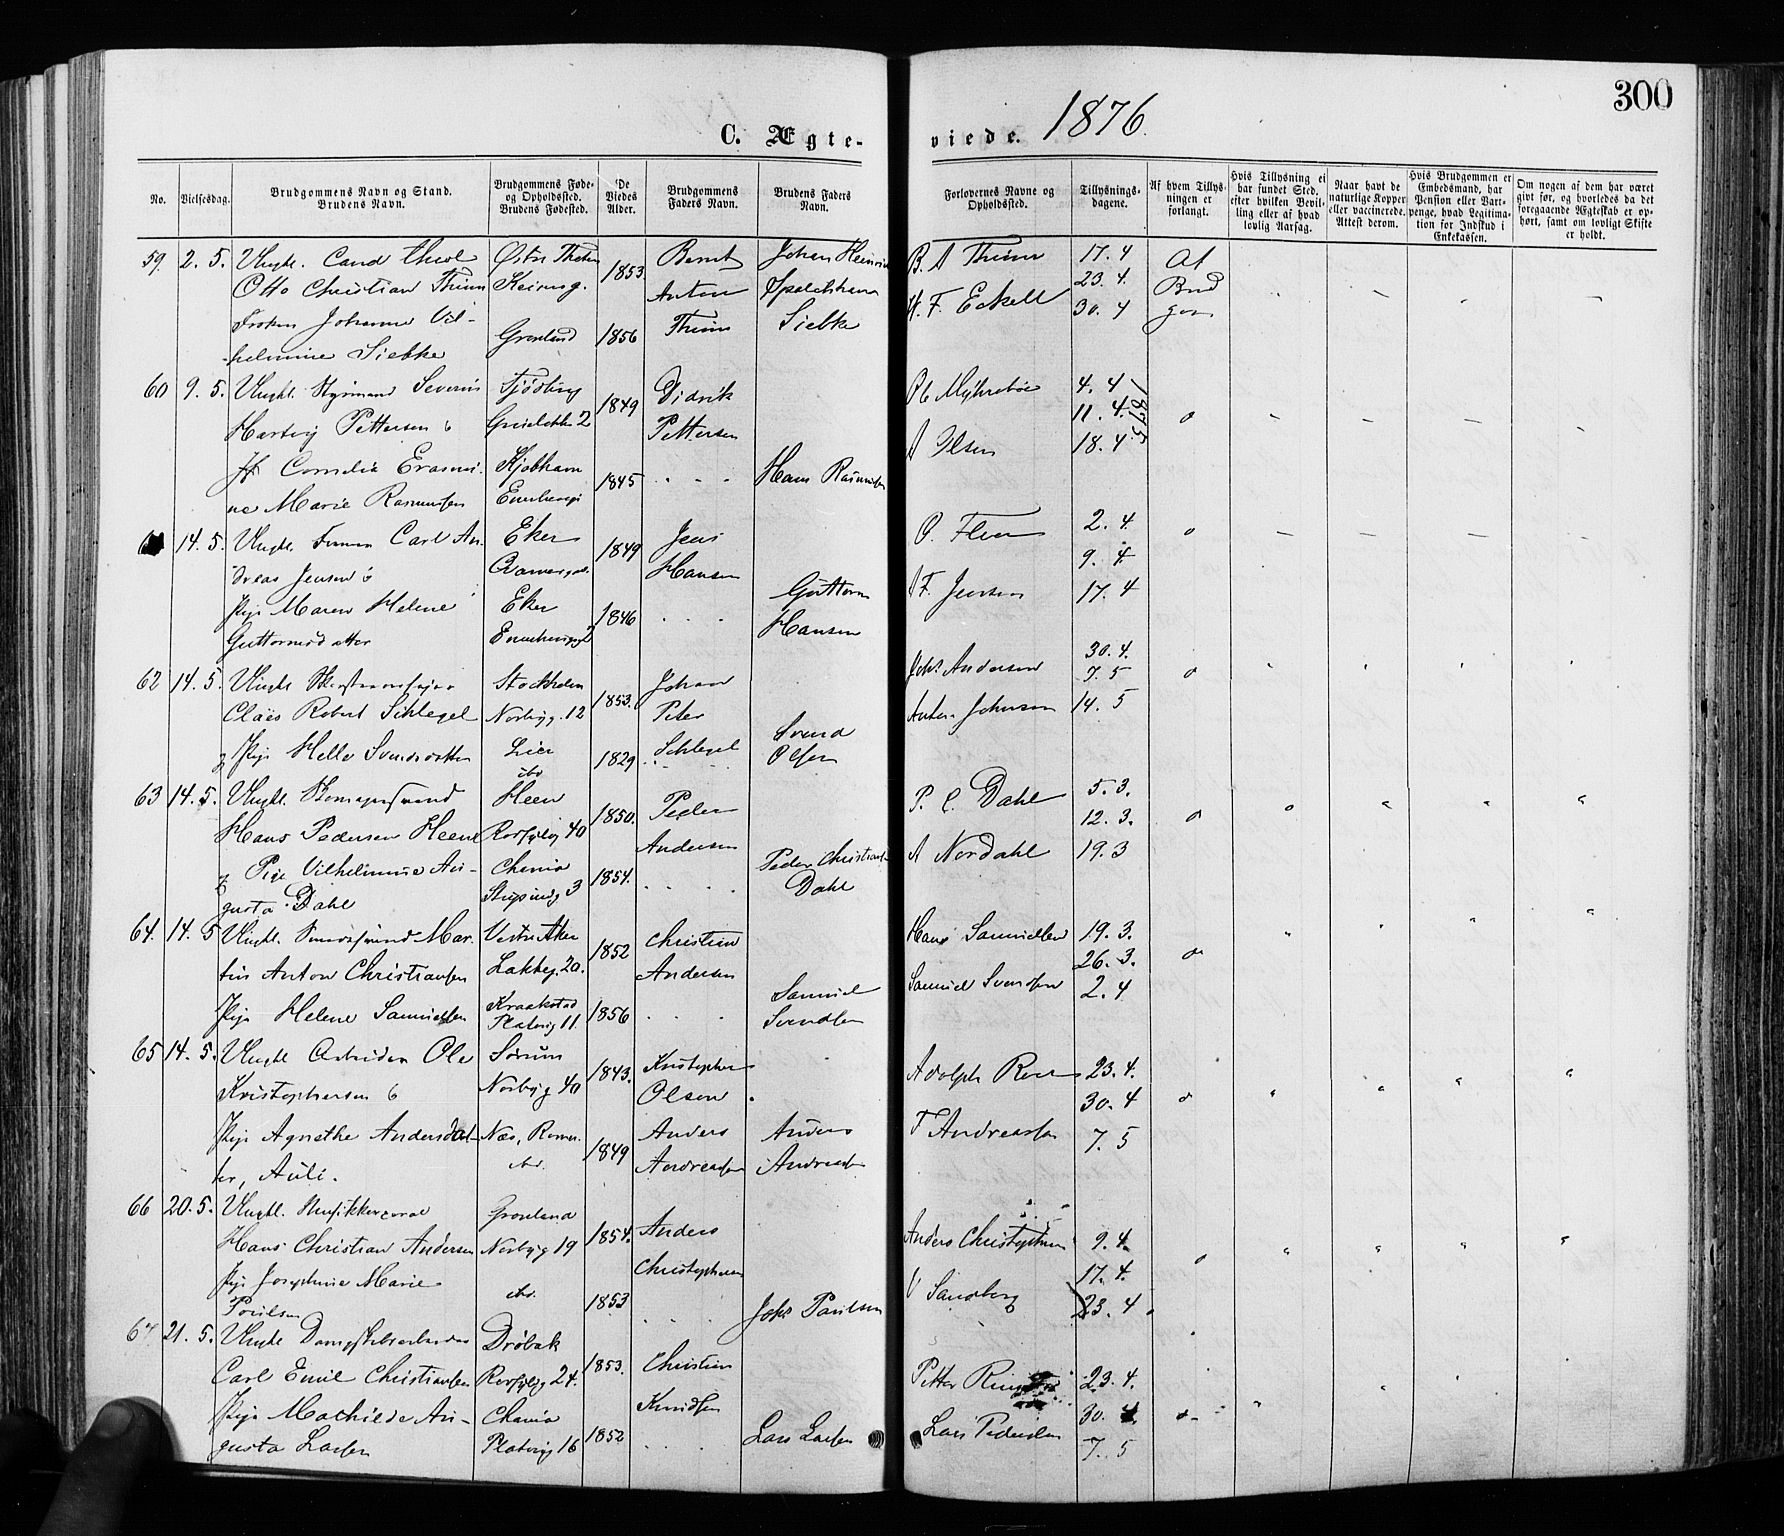 300
1876.
C. Ægte-
viede.
No.
Vielsesdag.
Brudgommens Navn og Stand.
Brudens Navn.
Brudgommens Føde-
og Opholdssted.
Brudens Fødested.
De
Viedes
Alder.
Brudgommens
Faders Navn.
Brudens Faders
Navn.
Forlovernes Navne og
Opholdssted.
Tillysnings-
dagene.
Af hvem Tillys-
ningen er
forlangt.
Hvis Tillysning ei
har fundet Sted,
efter hvilken Bevil-
ling eller af hvad
lovlig Aarsag.
Naar havt de
naturlige Kopper
eller vaccinerede.
Attest derom.
Hvis Brudgommen er
Embedsmand, har
Pension eller Vart-
penge, hvad Legitima-
tion for Indskud i
Enkekassen.
Om nogen af dem har været
givt før, og hvorledes da det
foregaaende Ægteskab er op-
hørt, samt om lovligt Skifte
er holdt.
59. 2. 5. Ungk. Cand theol
Otto Christian Thime
Frøken Johanne Vil-
helmine Siebke
Grønland
1853
1856
Bernt
Anton
Thime
Johan
Siebke
B. A Thime
H. F. Eckell
17. 4
23. 4.
30. 4
Af
Brud
gom
60 9. 5. Ungk. Styrmand Severin
Hartvig Pettersen
Jf Cornelia Erasmi-
ne Marie Rasmussen
2
Kjøbhavn
1849
1845
Didrik
Pettersen
Hans Rasmussen
A Olsen
4. 4
11. 4.
18. 4.
1875
14. 5. Ungk. Carl An-
dreas Jensen
Pige Maren Helene
Guttormsdatter
Eker
Eker
1849
1846
Jens
Hansen
Guttorm
Hansen
F. Jensen
2. 4.
9. 4.
17. 4
62 14. 5. Ungk.
Claës Robert Schlegel
Pige Helle Svendsdatter
Stockholm
Norbyg. 12
Lier
ibd
1853.
1829
Johan
Peter
Schlegel
Svend
Olsen
Johs Andersen
Anton Johnsen
30. 4.
7. 5
14. 5
63 14. 5. Ungk. Skomagersvend
Hans Pedersen Heen
Pige Vilhelmine Au-
gusta Dahl
Heen
40
Chania
3
1850.
1854.
Peder
Andersen
Peder Christiansen
Dahl
P. C. Dahl
A Nordahl
5. 3.
12. 3.
19. 3
64. 14. 5 Ungk. Smedsvend Mar-
tin Anton Christiansen
Pige Helene Samuelsen
Vestre Aker
Lakkeg. 20.
Kraakstad
Platoug 11
1852
1856
Christian
Andersen
Samuel
Svendsen
Hans Samuelsen
Samuel Svendsen
19. 3.
26. 3.
2. 4
65 14. 5. Ungk Arbeider Ole
Kristophersen
Pige Agnethe Andersdat-
ter, Auli.
Sørum
Norbyg 40
Næs, Romer.
ibd.
1843.
1849
Kristophersen
Olsen
Anders
Andreassen
Anders
Andreassen
Adolph
F Andreassen
23. 4.
30. 4
7. 5
66 20. 5. Ungk. Musikkorporal
Hans Christian Andersen
Pige Josephine Marie
Poulsen
Grønland
Norbyg 19
ibd.
1854.
1853
Anders
Christophersen
Johs Paulsen
Anders Christophersen
V Sandberg
9. 4.
17. 4.
23. 4
67 21. 5. Ungk
Carl Emil Christiansen
Pige Mathilde Au-
gusta Larsen
Drøbak
24.
Chania
Platoug 16
1853.
1852
Christian
Knudsen
Lars Larsen
Petter
Lars Pedersen
23. 4.
30. 4.
7. 5